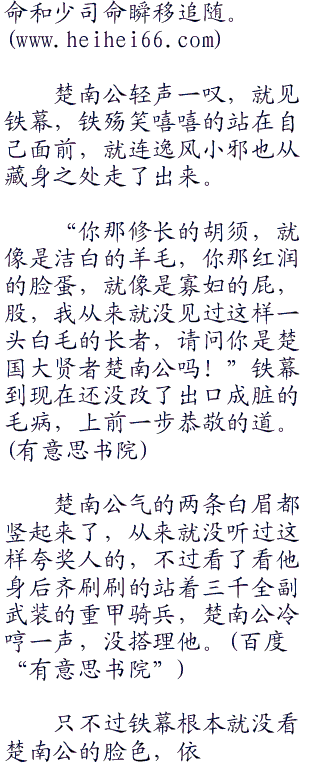 命和少司命瞬移追随。
(www.heihei66.com)
楚南公轻声一叹，就见
铁幕，铁殇笑嘻嘻的站在自
己面前，就连逸风小邪也从
藏身之处走了出来。
“你那修长的胡须，就
像是洁白的羊毛，你那红润
的脸蛋，就像是寡妇的屁，
股，我从来就没见过这样一
头白毛的长者，请问你是楚
国大贤者楚南公吗！”铁幕
到现在还没改了出口成脏的
毛病，上前一步恭敬的道。
(有意思书院)
楚南公气的两条白眉都
竖起来了，从来就没听过这
样夸奖人的，不过看了看他
身后齐刷刷的站着三千全副
武装的重甲骑兵，楚南公冷
哼一声，没搭理他。(百度
“有意思书院”)
只不过铁幕根本就没看
楚南公的脸色，依